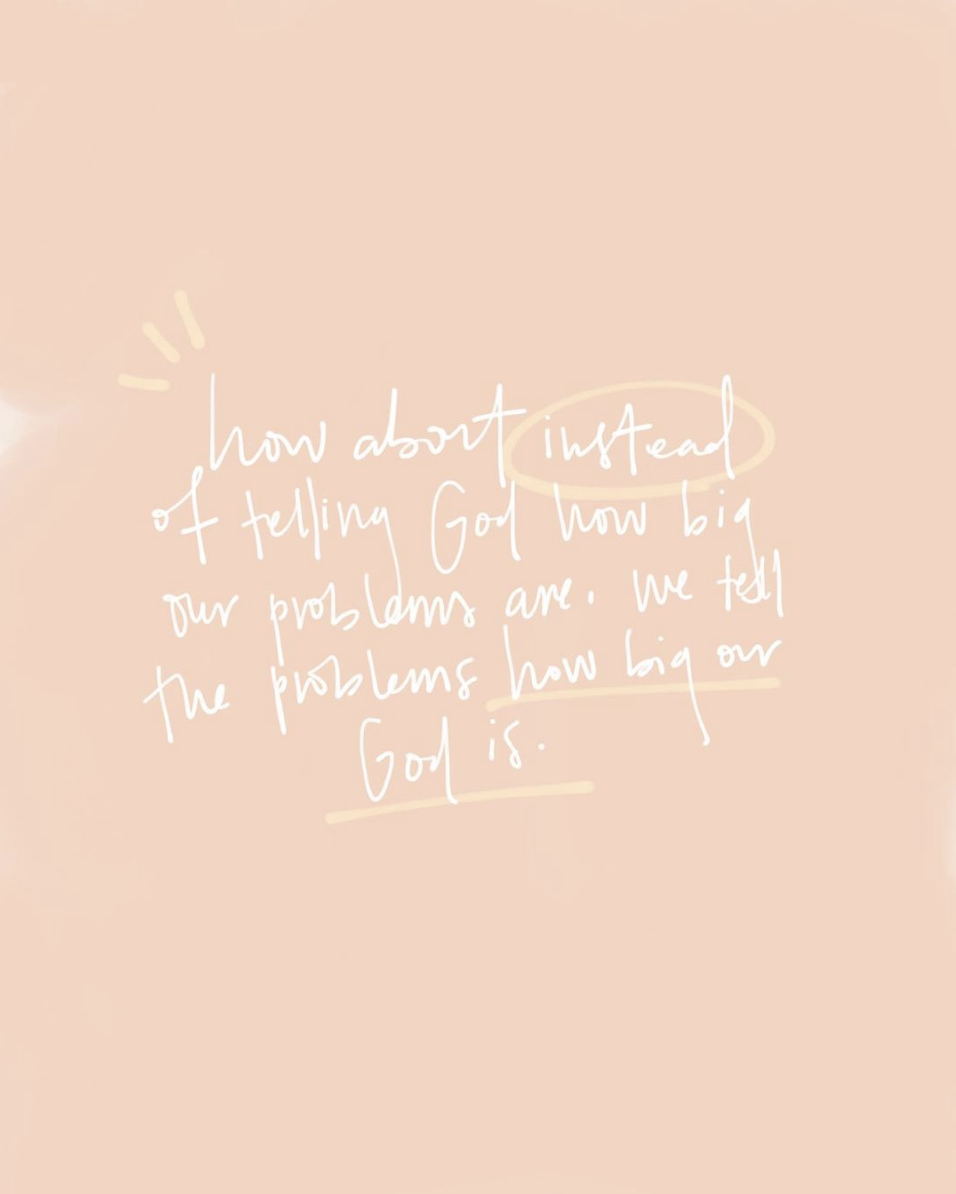 how about instead
of telling God how big
our problems are. we tell
the problems how big our
God is.